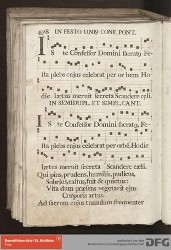 408 IN FESTO UNIUS CONF. PONT.
IS te Confessor Domini sacratus Fe-
sta plebs cujus celebrat per orbem Ho
die lætus meruit secreta Scandere cœli.
IN SEMIDUPL. ET SIMPL. CANT.
IS te Confessor Domini sacratus Fe-
sta plebs cujus celebrat per orbē, Hodie
lætus meruit secreta Scandere cœli.
Qui pius, prudens, humilis, pudicus,
Sobrius, castus fuit & quietus:
Vita dum præsens vegetavit ejus
Corporis artus.
Ad sacrum cujus tumulum frequenter
DFG